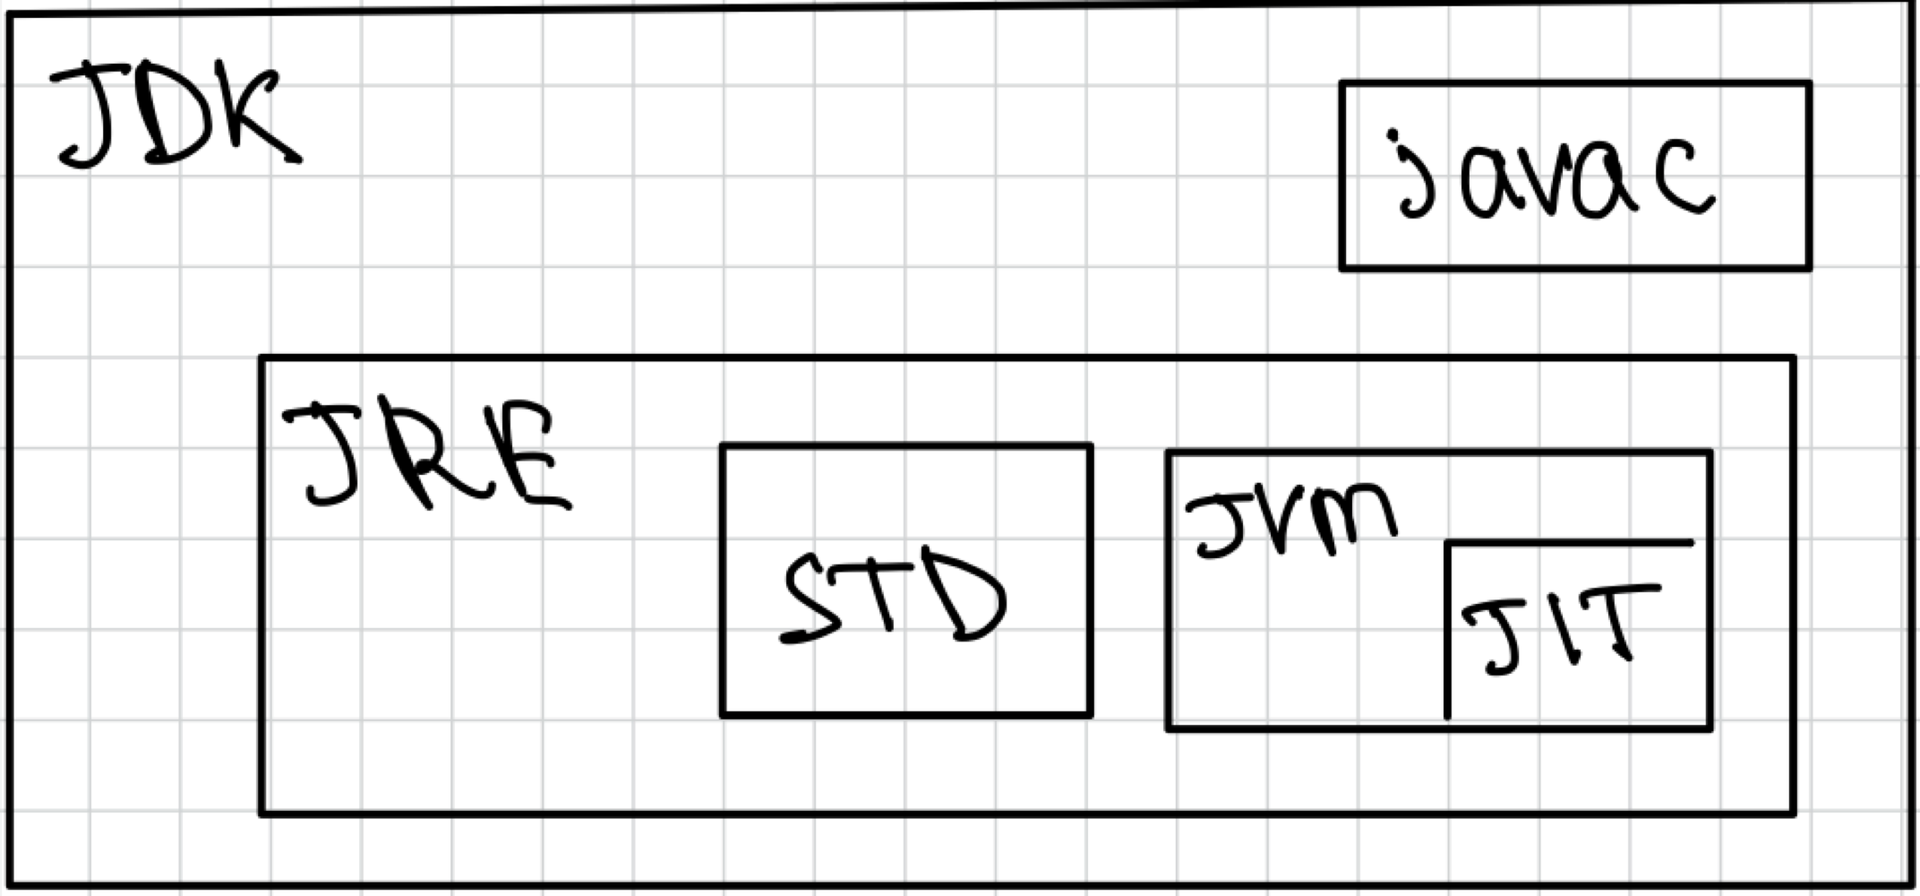 JDK
javac
JRE
STD
JVM
JIT